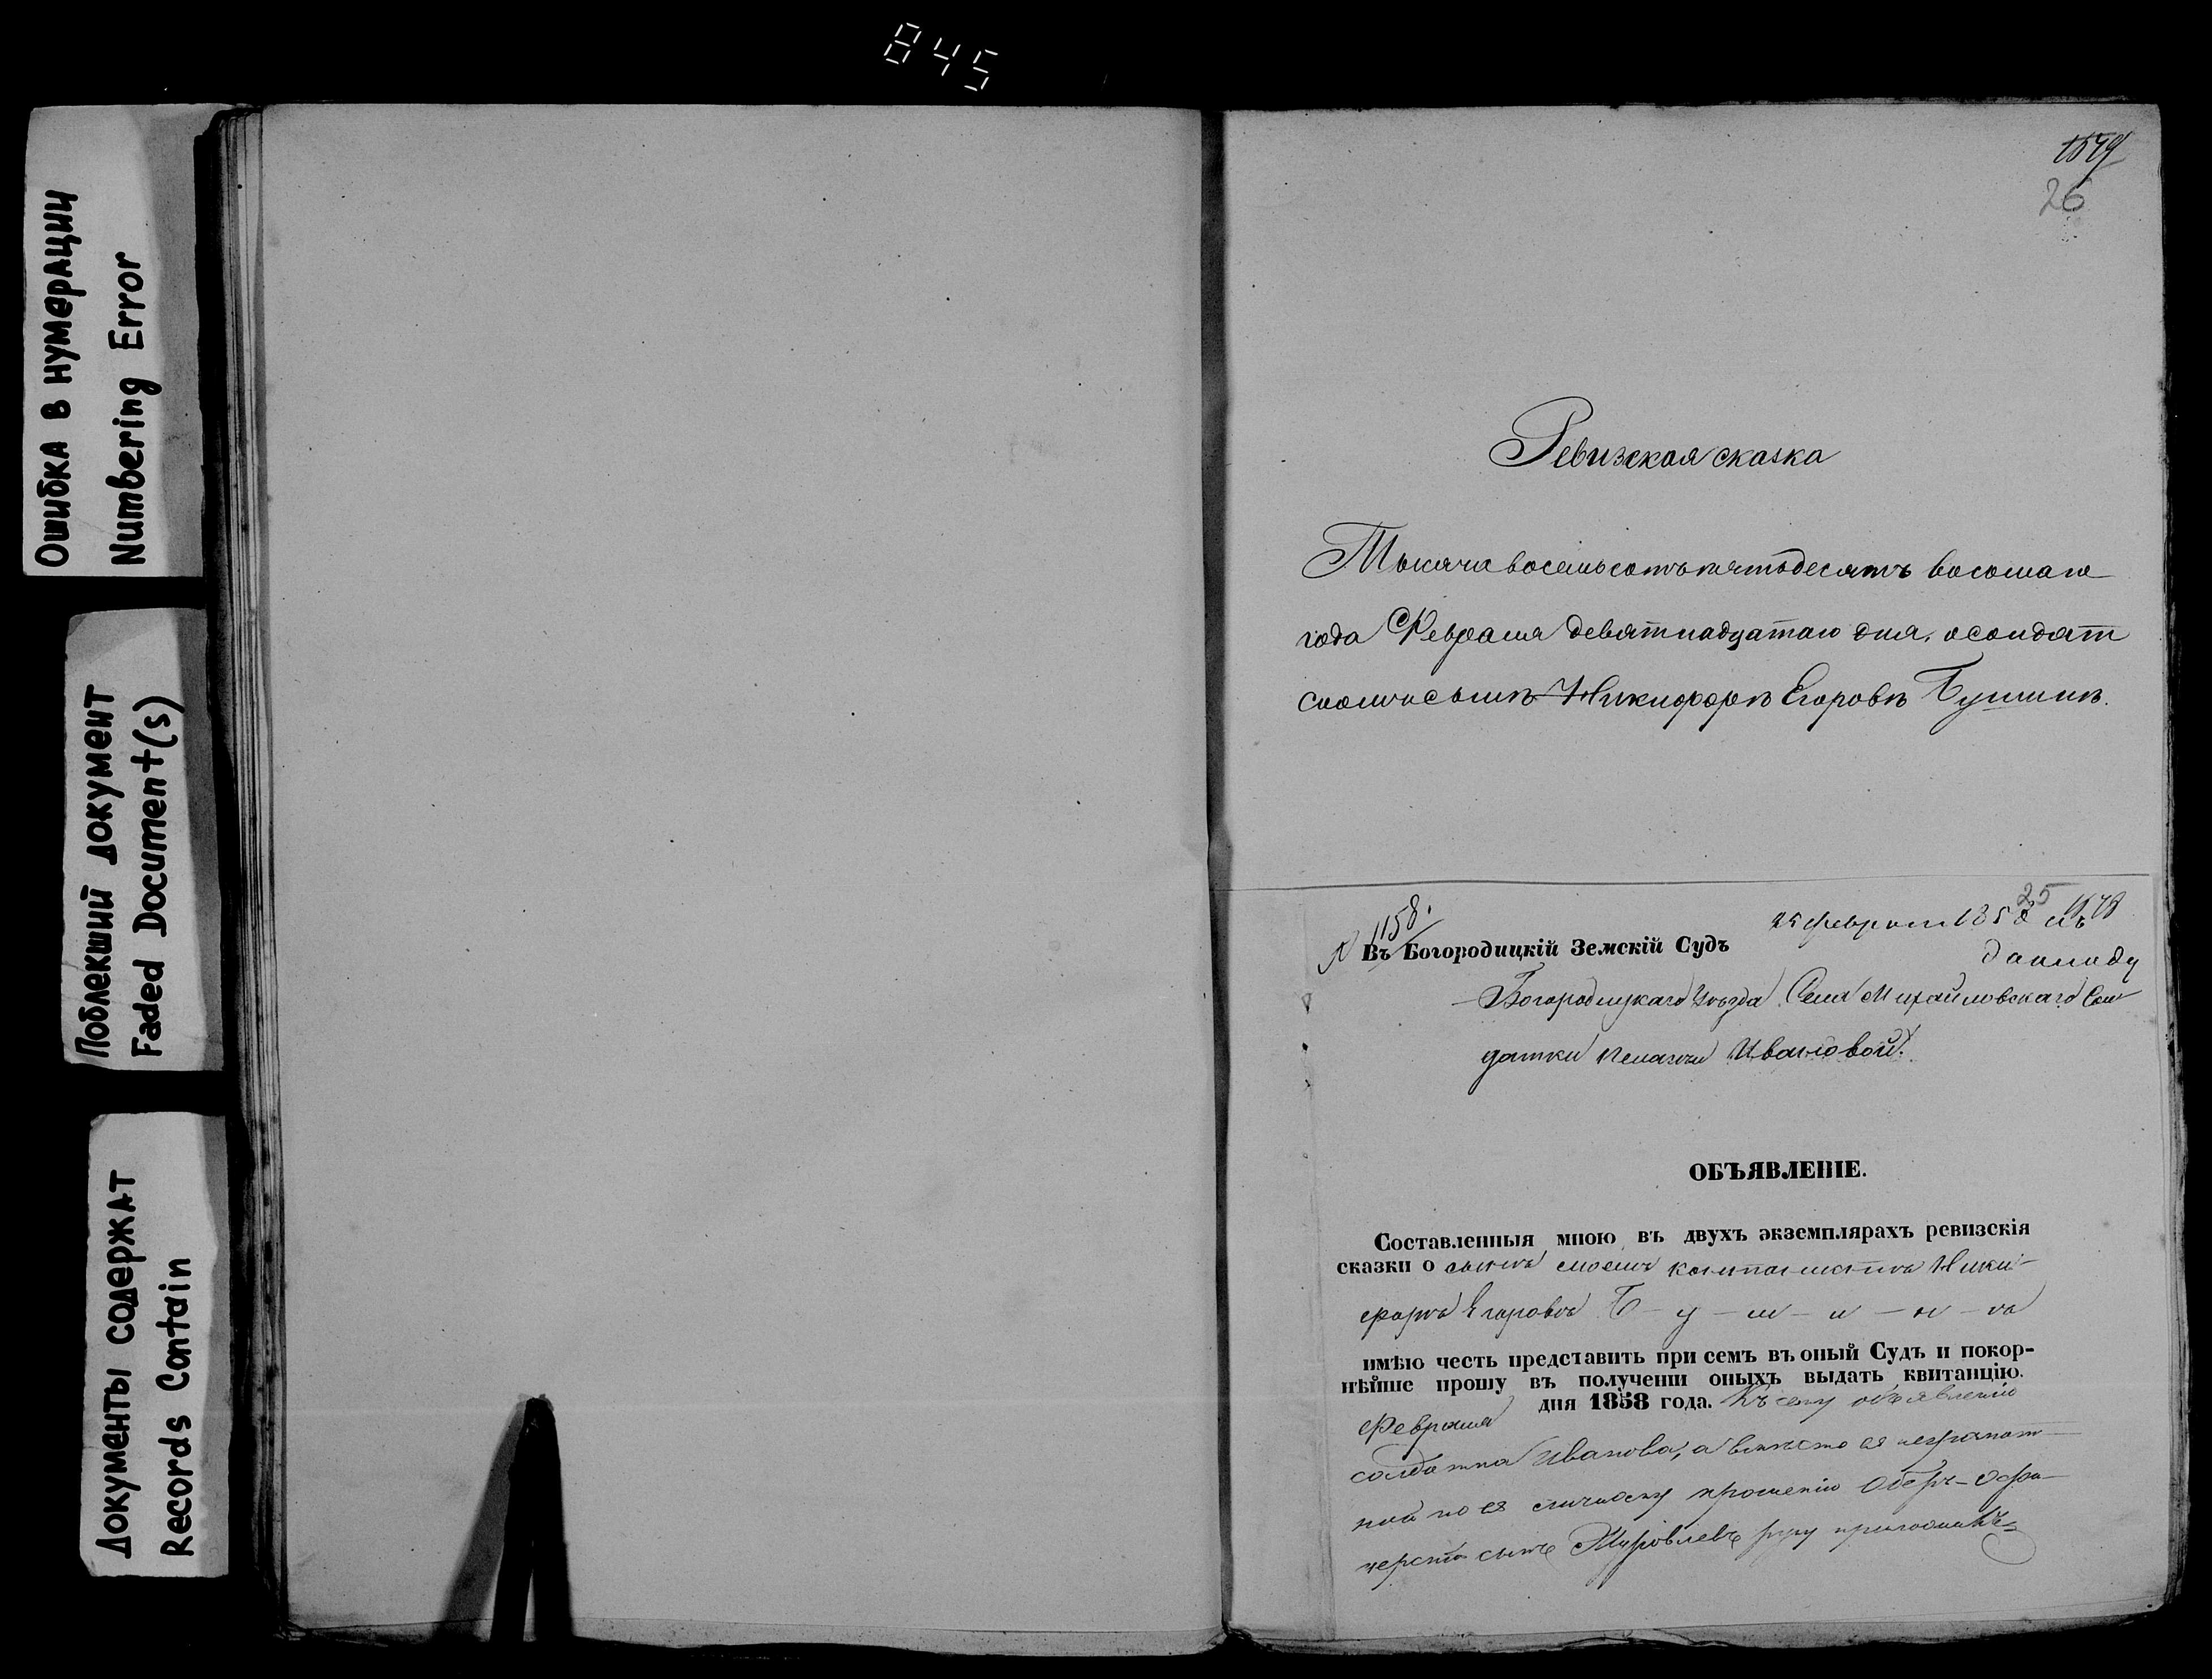 845
Ошибка в нумерации
Numbering Error
Поблекший документ
Faded Document(s)
Документы содержат
Records Contain
1879
26
Ревизская сказка
Тысяча восемьсотъ пятьдесятъ восьмаго
года Февраля девятнадцатаго дня, о солдат
скомъ сынѣ Никифорѣ Егоровѣ Бушинѣ.
№ 1158.
25 февраля 1858
25
1878
Въ Богородицкій Земскій Судъ
докладу
Богородицкаго уѣзда Села Михайловскаго Сол
датки Пелагеи Ивановой.
ОБЪЯВЛЕНІЕ.
Составленныя мною въ двухъ экземплярахъ ревизскія
сказки о сынѣ моемъ кантонистѣ Ники-
форѣ Егоровѣ Б-у-ш-и-н-ѣ
имѣю честь представить при семъ въ оный Судъ и покор-
нѣйше прошу въ полученіи оныхъ выдать квитанцію.
Февраля дня 1858 года. Къ сему объявленію
солдатка Иванова, а вмѣсто ея неграмот
ной по ея личному прошенію Оберъ-офи-
церскій сынъ руку приложилъ